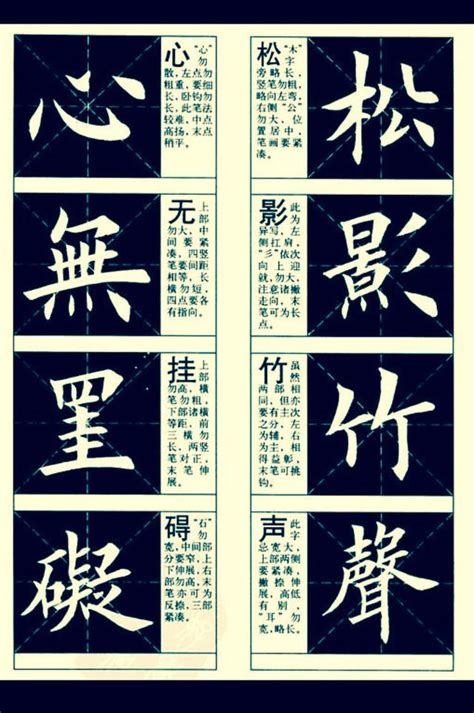 松
松“木”字
旁略长,
竖笔勿粗,
略向左弯,
右侧“公”
勿大,位
置居中,
笔画要紧
凑。
影
影此为
异写,左
侧扛肩,
“彡”依次
向上迎
就,勿大,
注意诸撇
走向,末
笔可为长
点。
竹
竹虽然
两部相
同,但亦
要有主次
之分,左
为辅,右
为主,相
得益彰,
末笔可挑
钩。
聲
声此字
总宽大,
上部两侧
要紧凑,
撇捺伸
展,高低
有别,
“耳”勿
宽,略长。
心
心“心”勿
散,左点勿
粗重,要细
长,卧钩勿
长,此笔法
较难,中点
高扬,末点
稍平。
無
无上部
勿大,中
间要紧
凑,四竖
笔要间距
相等,长
横勿短,
四点要各
有指向。
罣
挂上部
勿高,横
笔勿粗,
下部诸横
等距,前
三横勿
长,两竖
笔对正,
末笔伸
展。
礙
碍“石”勿
宽,中间部
分要窄,上
下伸展,右
部勿高,末
笔亦可为
反捺,三部
紧凑。